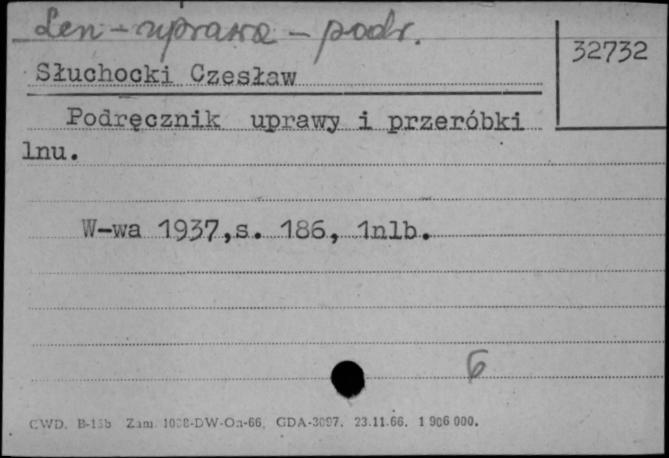 Len - uprawa - podr.
32732
Słuchocki Czesław
Podręcznik uprawy i przeróbki
lnu.
W-wa 1937,s. 186, 1nlb.
6
CWD. B-15b Zam. 1038-DW-Oa-66, GDA-3097. 23.11.66. 1 906 000.